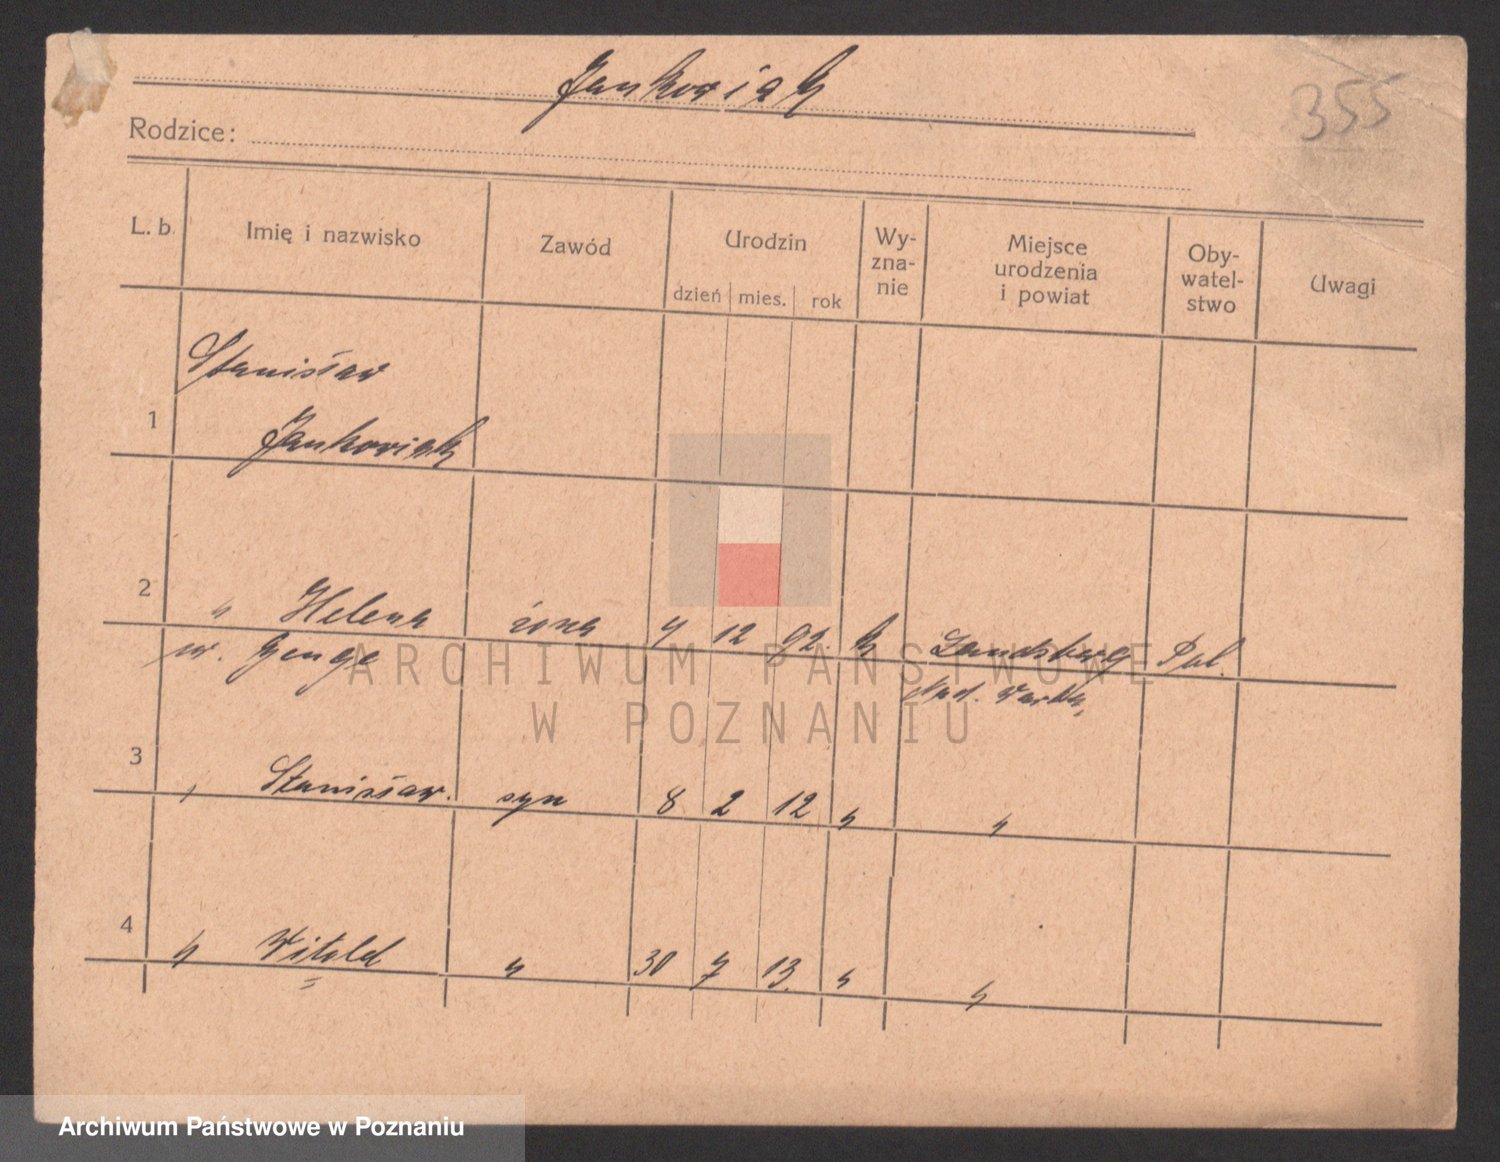 Jankowiak
355
Rodzice:
L. b. Imię i nazwisko Zawód Urodzin dzień mies. rok Wy-zna-nie Miejsce urodzenia i powiat Oby-watel-stwo Uwagi
Stanisław
1 Jankowiak
2 " Helena żona 7 12 92. k Landsberg Pol.
ur. Genge
Nad. Warthą
3 " Stanisław. syn 8 2 12 " "
4 " Witold " 30 7 13. " "
ARCHIWUM PAŃSTWOWE
W POZNANIU
Archiwum Państwowe w Poznaniu